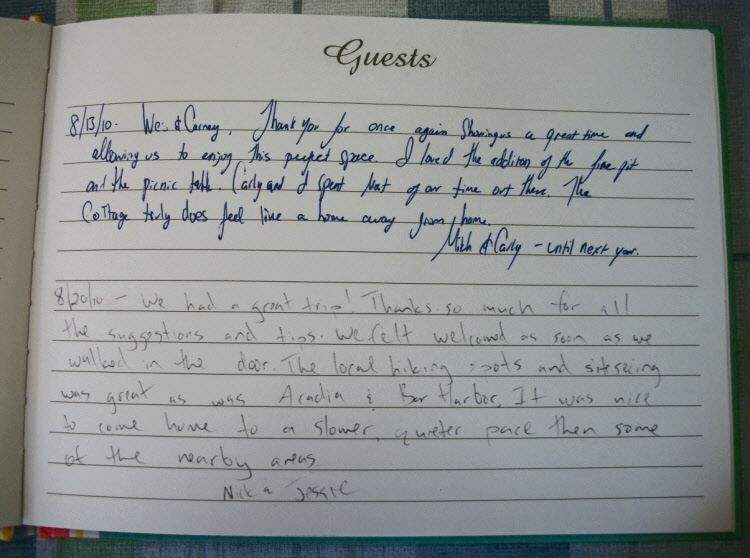 Guests
8/13/10. Wes & Carney, Thank you for once again Showing us a great time and
allowing us to enjoy this perfect space. I loved the addition of the fire pit
and the picnic table. Carly and I spent Most of our time out there. The
Cottage truly does feel like a home away from home.
Mitch & Carly - until next year.
8/20/10 - We had a great trip! Thanks so much for all
the suggestions and tips. We felt welcomed as soon as we
walked in the door. The local hiking spots and siteseeing
was great as was Acadia & Bar Harbor. It was nice
to come home to a slower, quieter pace then some
of the nearby areas.
Nick & Jessie